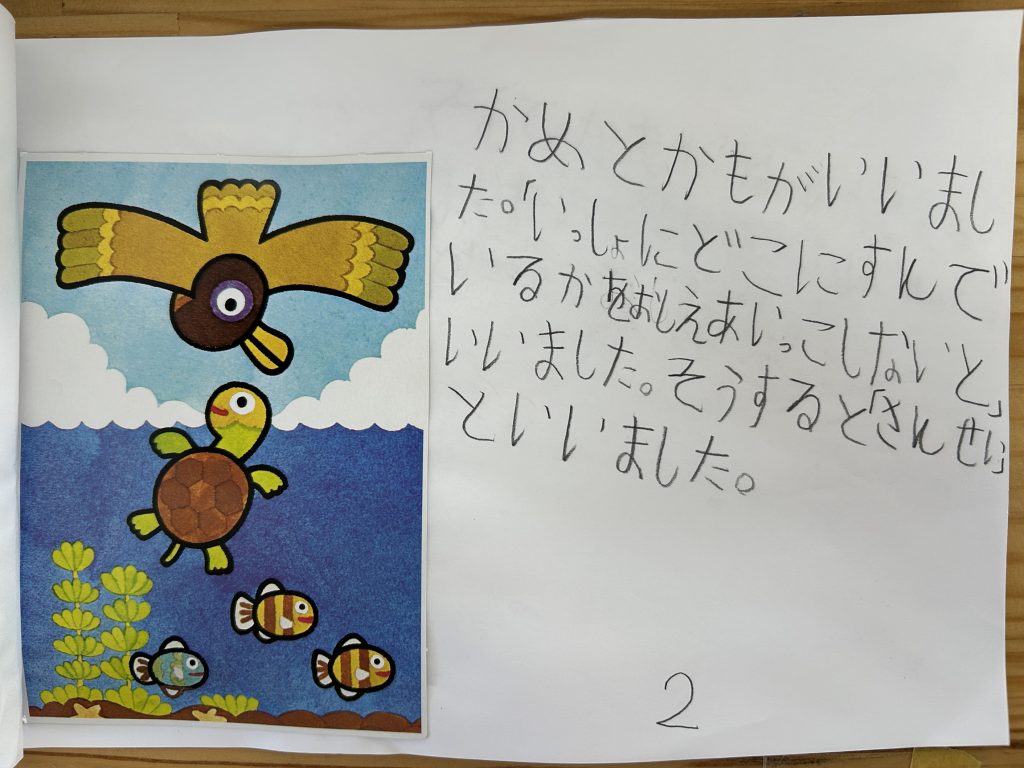 かめとかもがいいまし
た。「いっしょにどこにすんで
いるかをおしえあいっこしないと」
いいました。そうすると「さんせい」
といいました。
2